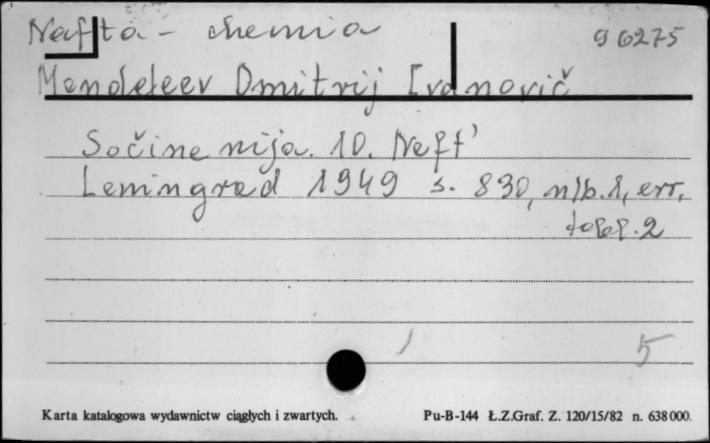 Nafta - chemia 96275
Mendeleev Dmitrij Ivanovič
Sočinenija. 10. Neft'
Leningrad 1949 s. 830, nlb. 1, err.
tabl. 2
5
Karta katalogowa wydawnictw ciągłych i zwartych. Pu-B-144 Ł.Z.Graf. Z. 120/15/82 n. 638000.